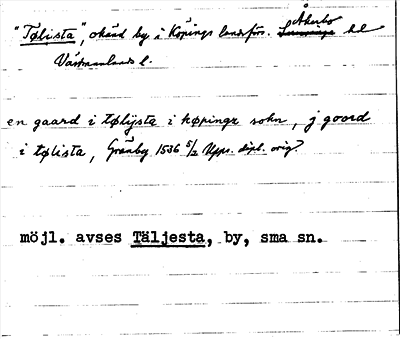 "Tølista", okänd by i Köpings landsförs. Åkerbo hd
Västmanlands l.
en gaard i tølijsta i køpingx sokn, j goord
i tølista, Gränby 1536 5/2 Upps. dipl. orig?
möjl. avses Täljesta, by, sma sn.